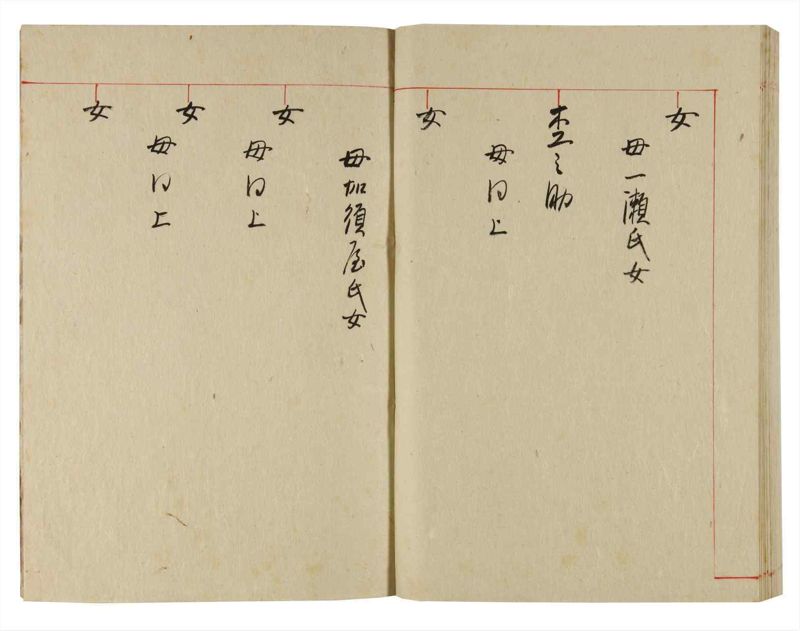 女
母一瀬氏女
杢之助
母同上
女
母加須屋氏女
女
母同上
女
母同上
女